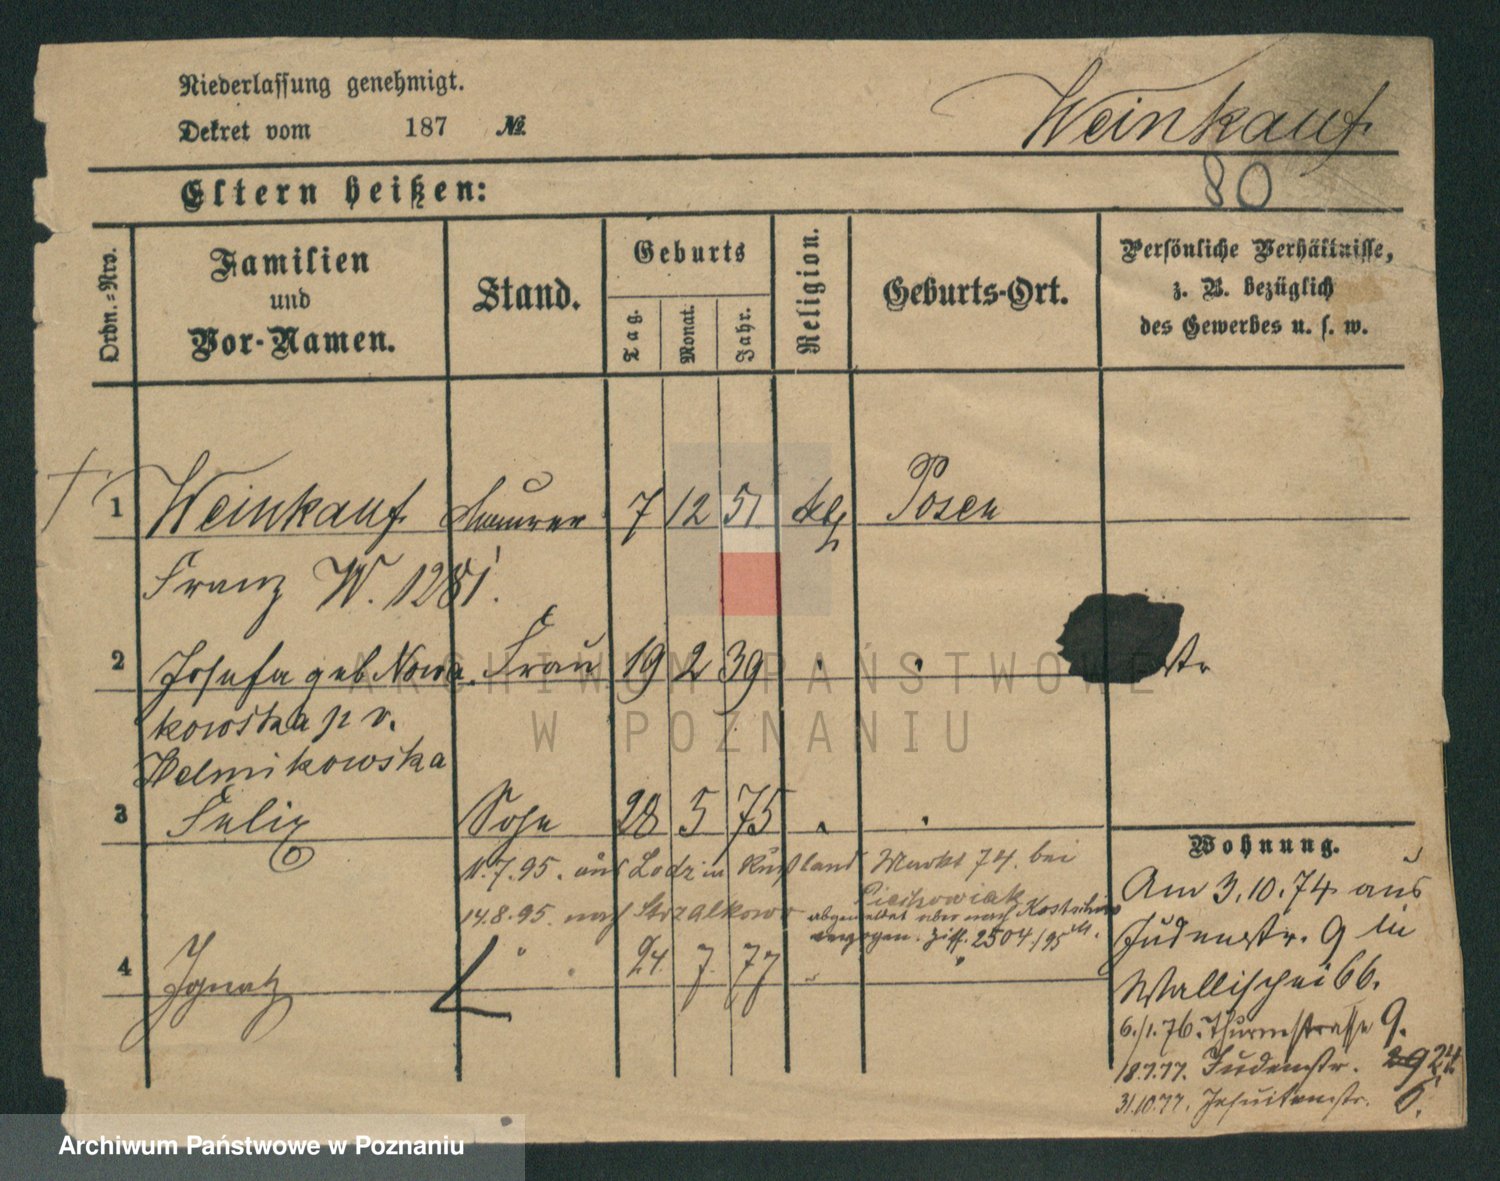 Niederlassung genehmigt.
Dekret vom 187 №.
Weinkauf
80
Eltern heißen:
Ordn.-Nro.
Familien und Vor-Namen.
Stand.
Geburts
Tag.
Monat.
Jahr.
Religion.
Geburts-Ort.
Persönliche Verhältnisse,
z. B. bezüglich
des Gewerbes u. s. w.
1 Weinkauf Maurer 7 12 51 ktl Posen
Franz W. 1281.
2 Josefa geb Nowa Frau 19 2 39
kowska p v.
Helmikowska
3 Felix Sohn 28 5 75
11.7.95. aus Lodz in Rußland Markt 74. bei
Piechowiak
14.8.95. nach Strzalkowo abgemeldet aber nach
verzogen. Ziff. 2504/95
4 Ignatz 24 7 77
Wohnung.
Am 3.10.74 aus
Judenstr. 9 in
Wallischei 66.
6./1.76. Thurmstrasse 9.
18.7.77. Judenstr. 24
31.10.77. Jesuitenstr. 6.
ARCHIWUM PAŃSTWOWE
W POZNANIU
Archiwum Państwowe w Poznaniu